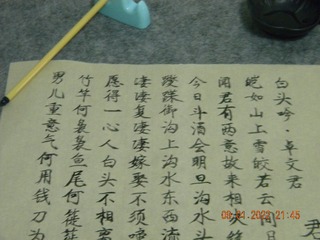 白头吟·卓文君
皑如山上雪皎若云间月
闻君有两意故来相决
今日斗酒会明旦沟水头
蹀躞御沟上沟水东西流
凄凄复凄凄嫁娶不须啼
愿得一心人白头不相离
竹竿何袅袅鱼尾何簁簁
男儿重意气何用钱刀为
君
21:45